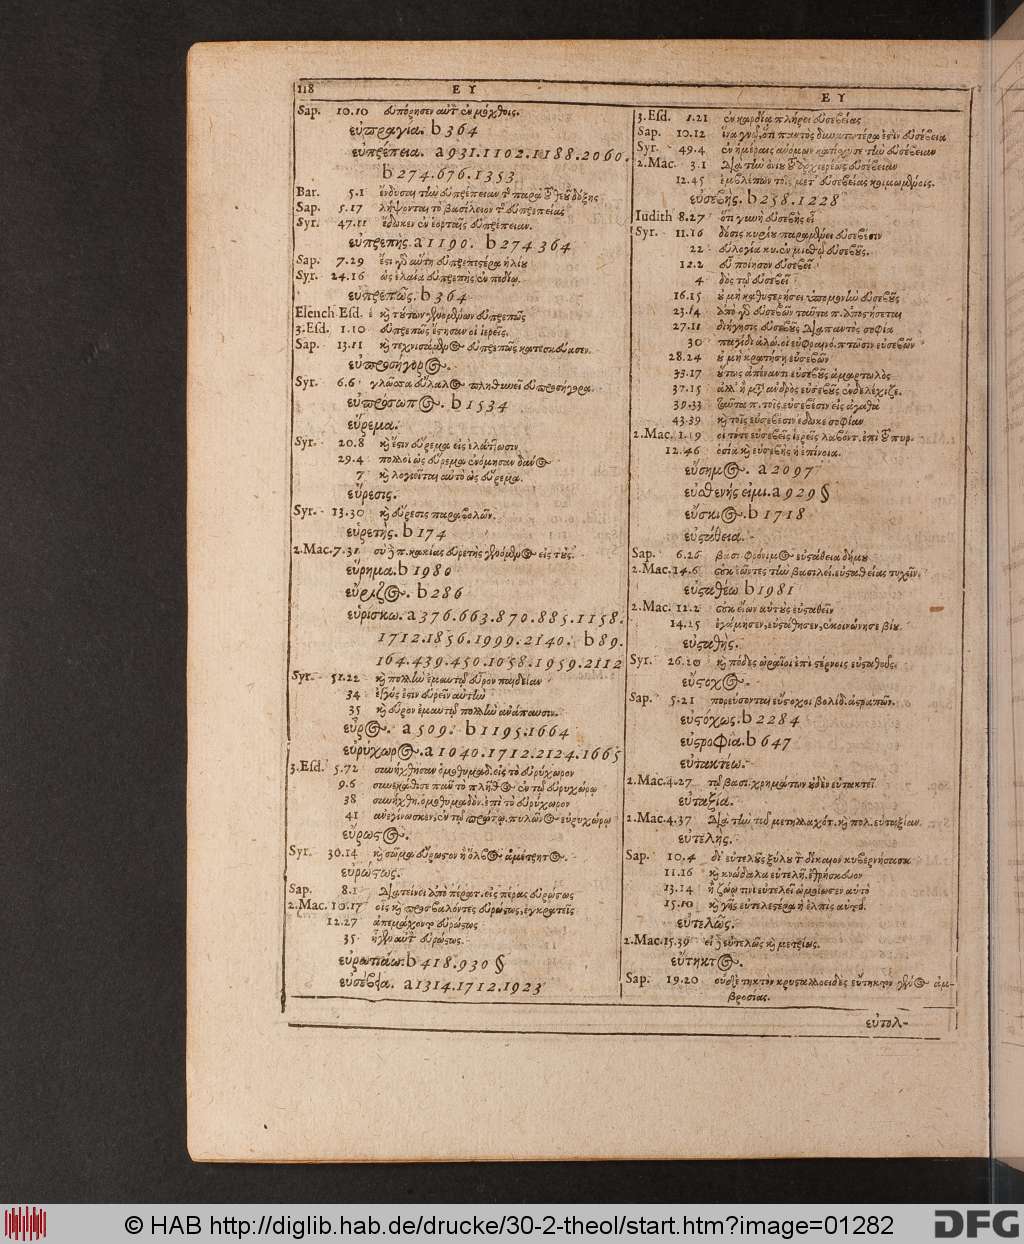 118 Ε Υ
Sap. 10.10 εὐπόρησεν αὐτὸν ἐν μόχθοις.
εὐπραγία. b 364
εὐπρέπεια. a 931.1102.1188.2060.
b 274.676.1353
Bar. 5.1 ἔνδυσαι τὴν εὐπρέπειαν τῆς παρὰ τοῦ θεοῦ δόξης
Sap. 5.17 λήψονται τὸ βασίλειον τῆς εὐπρεπείας
Syr. 47.11 ἔδωκεν ἐν ἑορταῖς εὐπρέπειαν.
εὐπρεπής. a 1190. b 274 364
Sap. 7.29 ἔστι γὰρ αὕτη εὐπρεπεστέρα ἡλίου
Syr. 24.16 ὡς ἐλαία εὐπρεπὴς ἐν πεδίῳ.
εὐπρεπῶς. b 364
Elench Esd. καὶ τούτων γενομένων εὐπρεπῶς
3. Esd. 1.10 εὐπρεπῶς ἔστησαν οἱ ἱερεῖς.
Sap. 13.11 καὶ τεχνησάμενος εὐπρεπῶς κατεσκεύασεν.
εὐπροσήγορος.
Syr. 6.6 γλῶσσα εὔλαλος πληθυνεῖ εὐπροσήγορα.
εὐπρόσωπος. b 1534
εὕρεμα.
Syr. 20.8 καὶ ἔστιν εὕρεμα εἰς ἐλάττωσιν
29.4 πολλοὶ ὡς εὕρεμα ἐνόμισαν δάνος
7 καὶ λογιεῖται αὐτὸ ὡς εὕρεμα.
εὕρεσις.
Syr. 13.30 καὶ εὕρεσις παραβολῶν.
εὑρετής. b 174
2. Mac. 7.31 σὺ δὲ π. κακίας εὑρετὴς γενόμενος εἰς τοὺς.
εὕρημα. b 1980
εὔριζος. b 286
εὑρίσκω. a 376.663.870.885.1158.
1712.1856.1999.2140. b 89.
164.439.450.1058.1959.2112
Syr. 51.22 καὶ πολλὴν ἐμαυτῷ εὗρον παιδείαν
34 ἐγγύς ἐστιν εὑρεῖν αὐτήν
35 καὶ εὗρον ἐμαυτῷ πολλὴν ἀνάπαυσιν.
εὖρος. a 509. b 1195.1664
εὐρύχωρος. a 1040.1712.2124.1665
3. Esd. 5.72 συνήχθησαν ὁμοθυμαδ. εἰς τὸ εὐρύχωρον
9.6 συνεκάθισε πᾶν τὸ πλῆθος ἐν τῷ εὐρυχώρῳ
38 συνήχθη. ὁμοθυμαδὸν. ἐπὶ τὸ εὐρύχωρον
41 ἀνεγίνωσκεν, ἐν τῷ πρώτῳ. πυλῶνος εὐρυχώρῳ
εὔρωστος.
Syr. 30.14 καὶ σῶμα εὔρωστον ἢ ὄλβος ἀμέτρητος.
εὐρώστως.
Sap. 8.1 διατείνει ἀπὸ πέρατ. εἰς πέρας εὐρώστως
2. Mac. 10.17 οἷς καὶ προσβαλόντες εὐρώστως, ἐγκρατεῖς
12.27 ἀπεμάχοντο εὐρώστως
35 ἦγεν αὐτὸν εὐρώστως.
εὐρωτιάω. b 418.930 §
εὐσέβεια. a 1314.1712.1923
Ε Υ
3. Esd. 1.21 ἐν καρδίᾳ πλήρει εὐσεβείας
Sap. 10.12 ἵνα γνῷ, ὅτι παντὸς δυνατωτέρα ἐστὶν εὐσέβεια
Syr. 49.4 ἐν ἡμέραις ἀνόμων κατίσχυσε τὴν εὐσέβειαν
2. Mac. 3.1 διὰ τὴν ὀνίου τοῦ ἀρχιερέως εὐσέβειαν
12.45 ἐμβλέπων τοῖς μετ' εὐσεβείας κοιμωμένοις.
εὐσεβής. b 258.1228
Iudith 8.27 ὅτι γυνὴ εὐσεβὴς εἶ
Syr. 11.16 δόσις κυρίου παραμένει εὐσεβέσιν
22 εὐλογία κυ. ἐν μισθῷ εὐσεβοῦς.
12.2 εὖ ποίησον εὐσεβεῖ
4 δὸς τῷ εὐσεβεῖ
16.15 οὐ μὴ καθυστερήσει ὑπομονὴν εὐσεβοῦς
23.14 ἀπὸ γὰρ εὐσεβῶν ταῦτα π. ἀποστήσεται
27.11 διήγησις εὐσεβοῦς διαπαντὸς σοφία
30 παγίδι ἁλώ. οἱ εὐφραινό. πτώσιν εὐσεβῶν
28.24 οὐ μὴ κρατήσῃ εὐσεβῶν
33.17 οὕτως ἀπέναντι εὐσεβοῦς ἁμαρτωλός
37.15 ἀλλ' ἢ μετὰ ἀνδρὸς εὐσεβοῦς ἐνδελέχιζε.
39.33 ταῦτα π. τοῖς εὐσεβέσιν εἰς ἀγαθά
43.39 καὶ τοῖς εὐσεβέσιν ἔδωκε σοφίαν
2. Mac. 1.19 οἱ τότε εὐσεβεῖς ἱερεῖς λαβόντ. ἀπὸ τοῦ πυρ.
12.46 ὁσία καὶ εὐσεβὴς ἡ ἐπίνοια.
εὔσημος. a 2097
εὐσθενής εἰμι. a 929 §
εὔσκιος. b 1718
εὐστάθεια.
Sap. 6.26 βασι. φρόνιμος εὐστάθεια δήμου
2. Mac. 14.6 οὐκ ἐῶντες τὴν βασιλεί. εὐσταθείας τυχεῖν.
εὐσταθέω b 1981
2. Mac. 12.2 οὐκ εἴων αὐτοὺς εὐσταθεῖν
14.25 ἐγάμησεν, εὐστάθησεν, ἐκοινώνησε βίου.
εὐσταθής.
Syr. 26.20 καὶ πόδες ὡραῖοι ἐπὶ στέρνοις εὐσταθοῦς.
εὔστοχος.
Sap. 5.21 πορεύσονται εὔστοχοι βολίδ. ἀστραπῶν.
εὐστόχως. b 2284
εὐστροφία. b 647
εὐτακτέω.
2. Mac. 4.27 τῷ βασι. χρημάτων οὐδὲν εὐτακτεῖ
εὐταξία.
2. Mac. 4.37 διὰ τὴν τοῦ μετηλλαχότ. καὶ πολ. εὐταξίαν.
εὐτελής.
Sap. 10.4 δι' εὐτελοῦς ξύλου τὸν δίκαιον κυβερνήσασα
11.16 καὶ κνώδαλα εὐτελῆ ἐθρήσκευον
13.14 ἢ ζώῳ τινὶ εὐτελεῖ ὡμοίωσεν αὐτό
15.10 καὶ γῆς εὐτελεστέρα ἡ ἐλπὶς αὐτοῦ.
εὐτελῶς.
2. Mac. 15.39 εἰ δὲ εὐτελῶς καὶ μετρίως.
εὔτηκτος.
Sap. 19.20 οὐδὲ τηκτὸν κρυσταλλοειδὲς εὔτηκτον γένος ἀμ-
βροσίας.
εὐτολ-
© HAB http://diglib.hab.de/drucke/30-2-theol/start.htm?image=01282
DFG